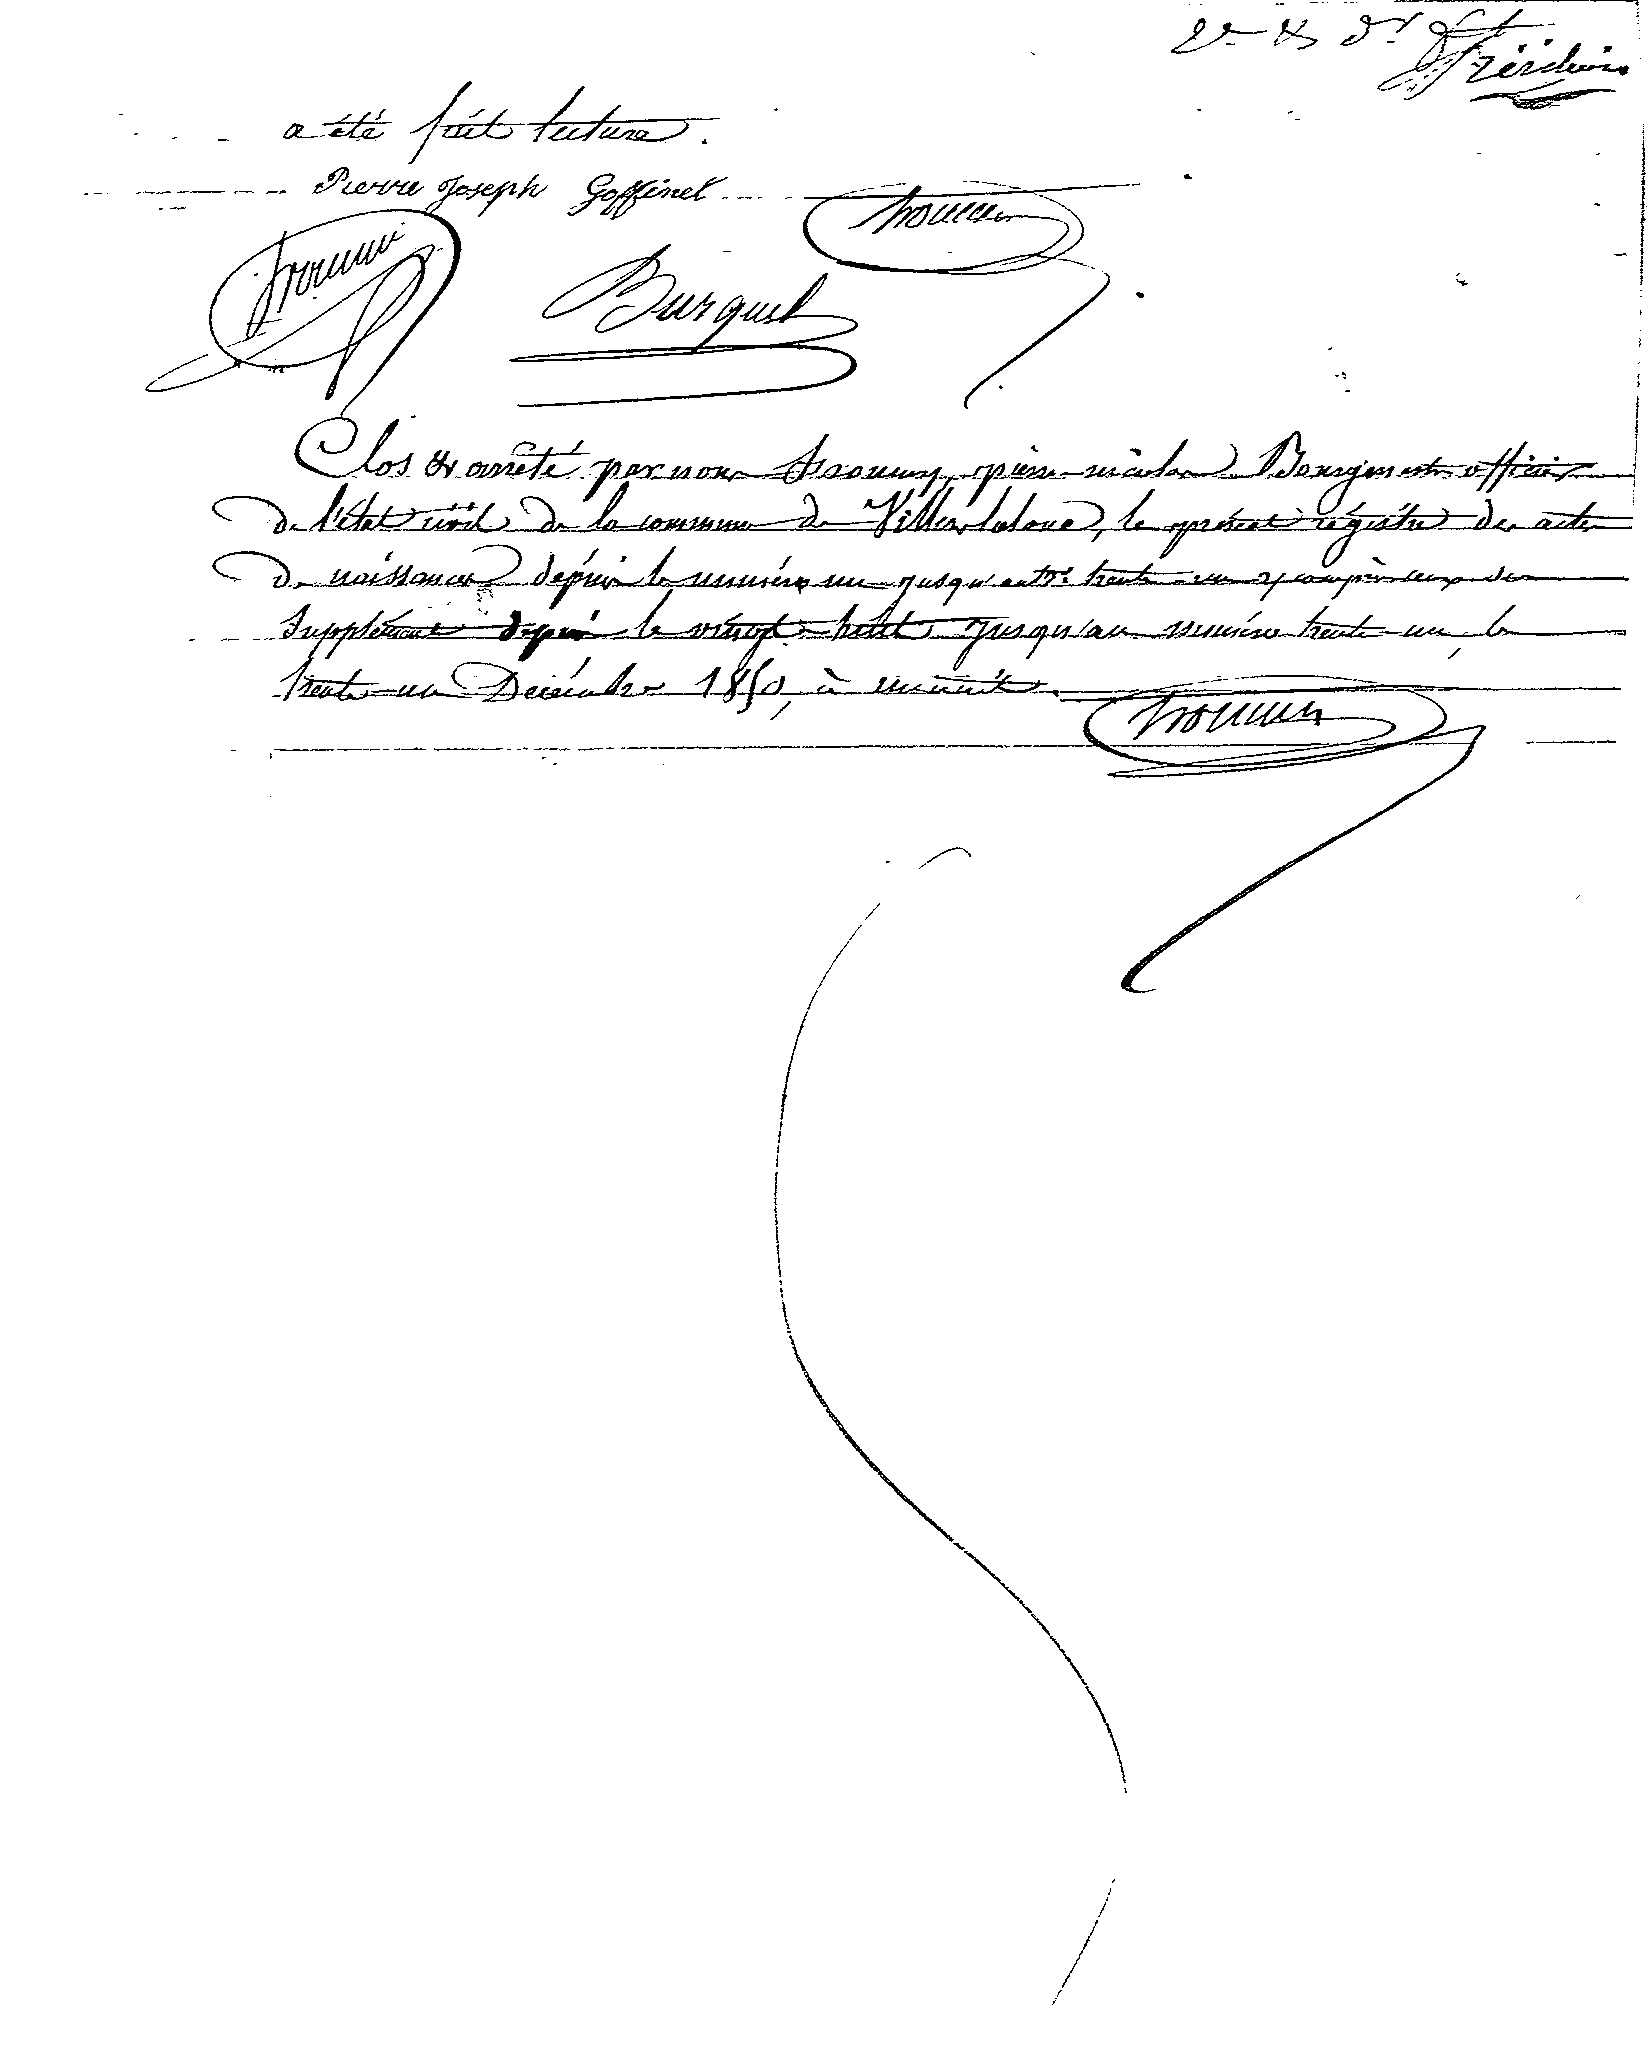 2e & dr
a été fait lecture.
Pierre Joseph Goffinet
Burquel
Clos & arrêté par nous pierre nicolas Bourgmestre officier
de l'état civil de la commune de Villers la loue, le présent régistre des actes
de naissances depuis le numéro un jusqu'au trente un y compris ceux du
Supplément depuis le vingt huit jusqu'au numéro trente un, le
trente un Décembre 1850, à minuit.